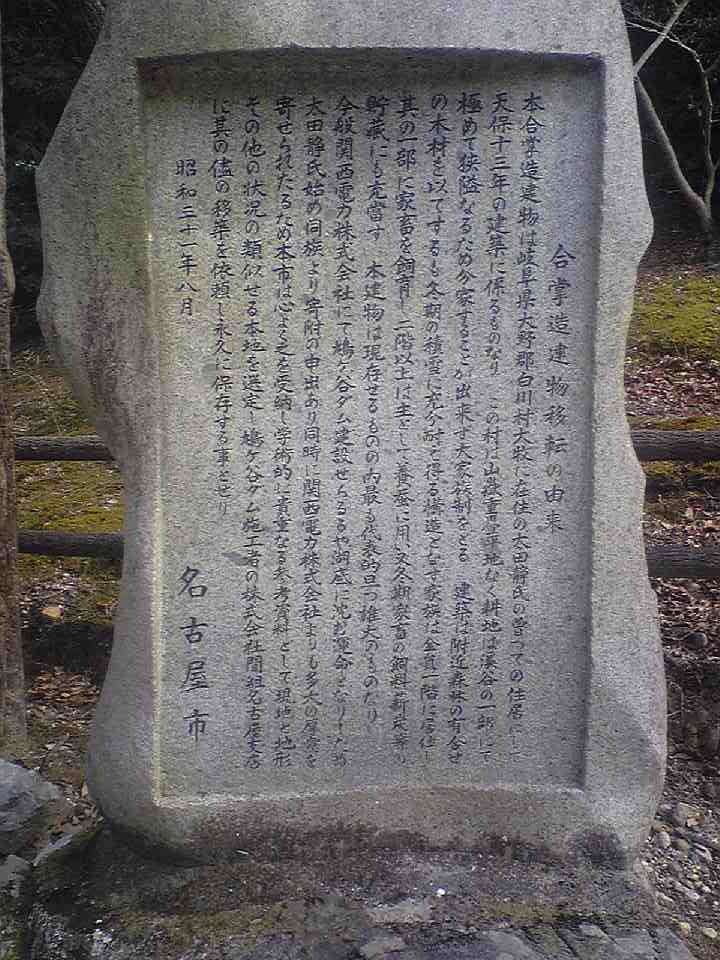 合掌造建物移転の由来
本合掌造建物は岐阜県大野郡白川村大牧に在住の太田静氏の曽つての住居にして
天保十三年の建築に係るものなり この村は山嶽重畳平地なく耕地は渓谷の一部にて
極めて狭隘なるため分家すること出来ず大家族制をとる 建築は附近森林の有合せ
の木材を以てするも冬期の積雪に充分耐え得る構造となす家族は全員一階に居住し
其の一部に家畜を飼育し二階以上は主として養蚕に用い又冬期家畜の飼料薪炭等の
貯蔵にも充當す 本建物は現存せるものの内最も代表的且つ雄大のものたり
今般関西電力株式会社にて鳩ヶ谷ダム建設せらるるや湖底に沈む運命となりしため
太田静氏始め同族より寄附の申出あり同時に関西電力株式会社よりも多大の厚意を
寄せられたるため本市は心よく之を受納し学術的に貴重なる参考資料として現地と地形
その他の状況の類似せる本地を選定し鳩ヶ谷ダム施工者の株式会社間組名古屋支店
に其の儘の移築を依頼し永久に保存する事とせり
昭和三十一年八月
名古屋市